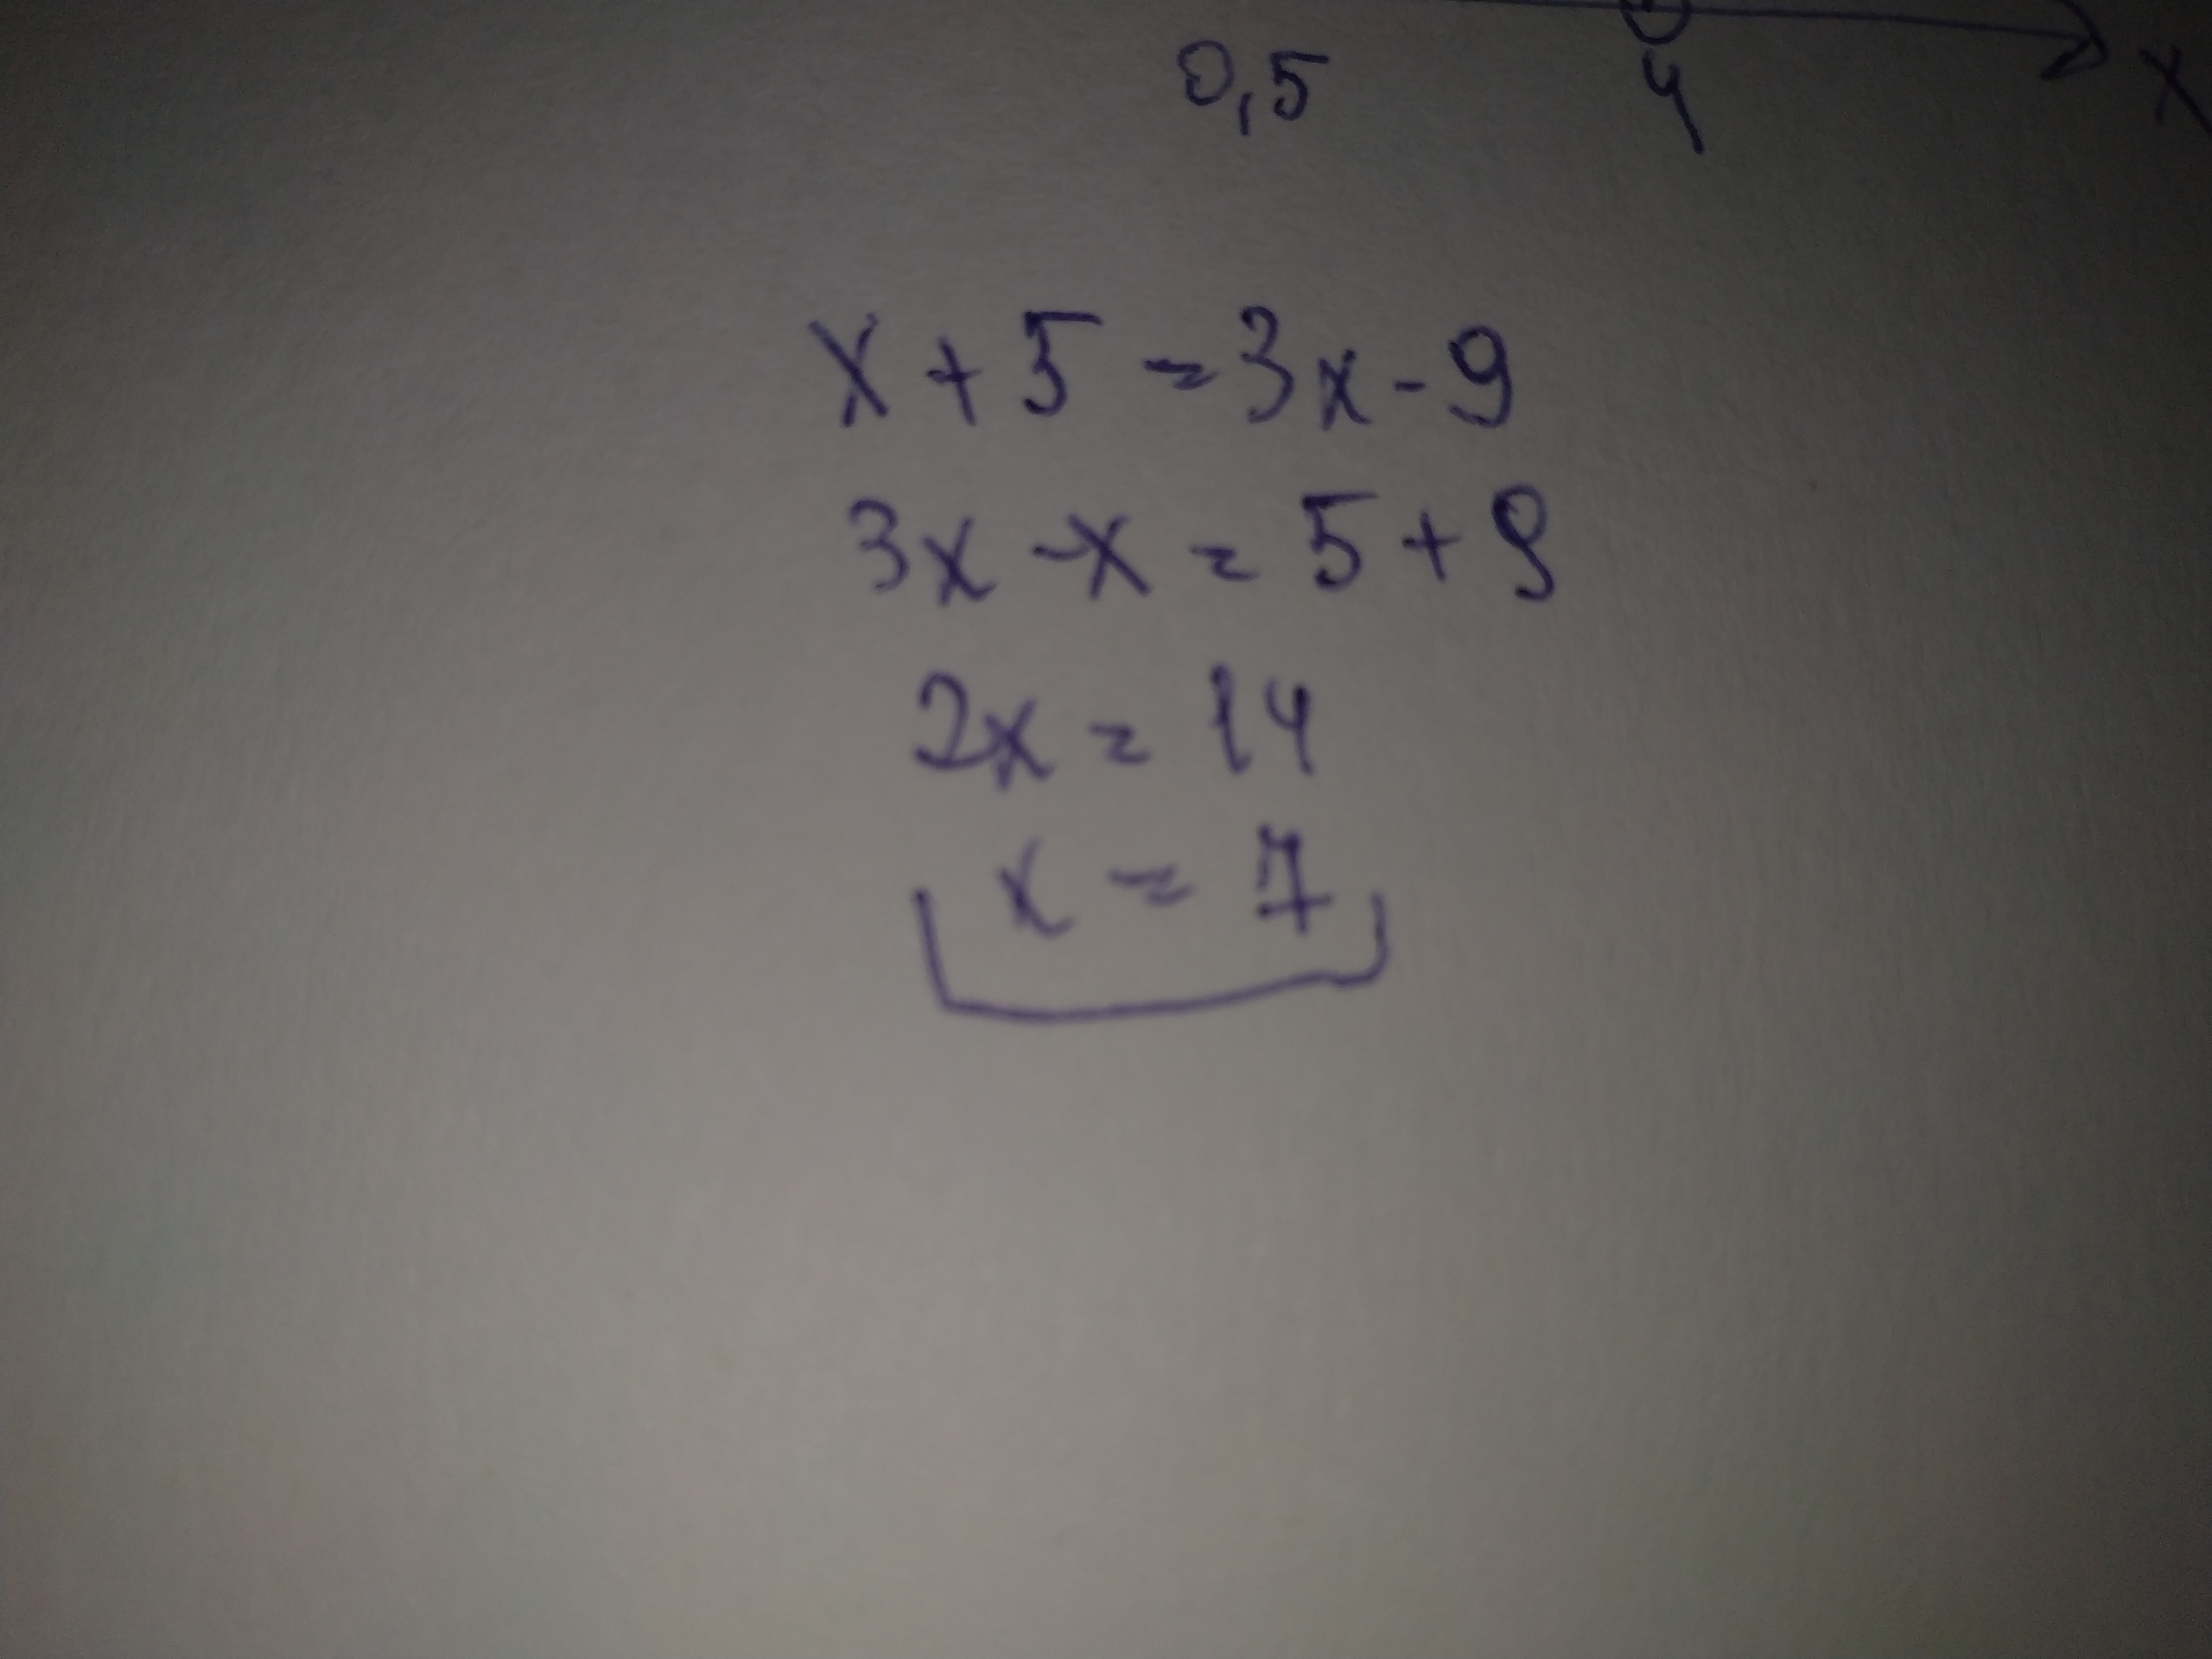 0,5 4 x
x + 5 = 3x - 9
3x - x = 5 + 9
2x = 14
x = 7